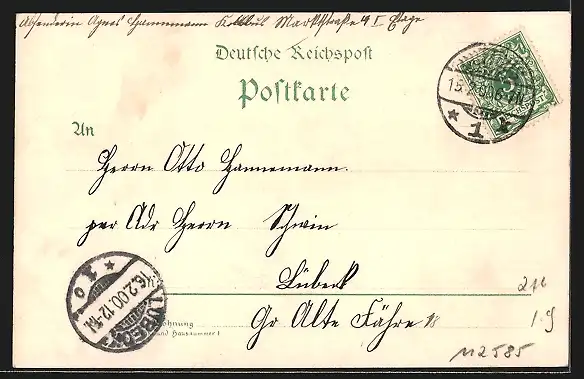 Absenderin Agnes Hannemann Kottbus Marktstraße 9 I Etage
Deutsche Reichspost
Postkarte
An
Herrn Otto Hannemann
per Adr Herrn Schwin
Lübeck
Gr Alte Fähre
15.2.00.
1
16.2.00.12-1
LÜBECK
Wohnung
und Hausnummer
M2585